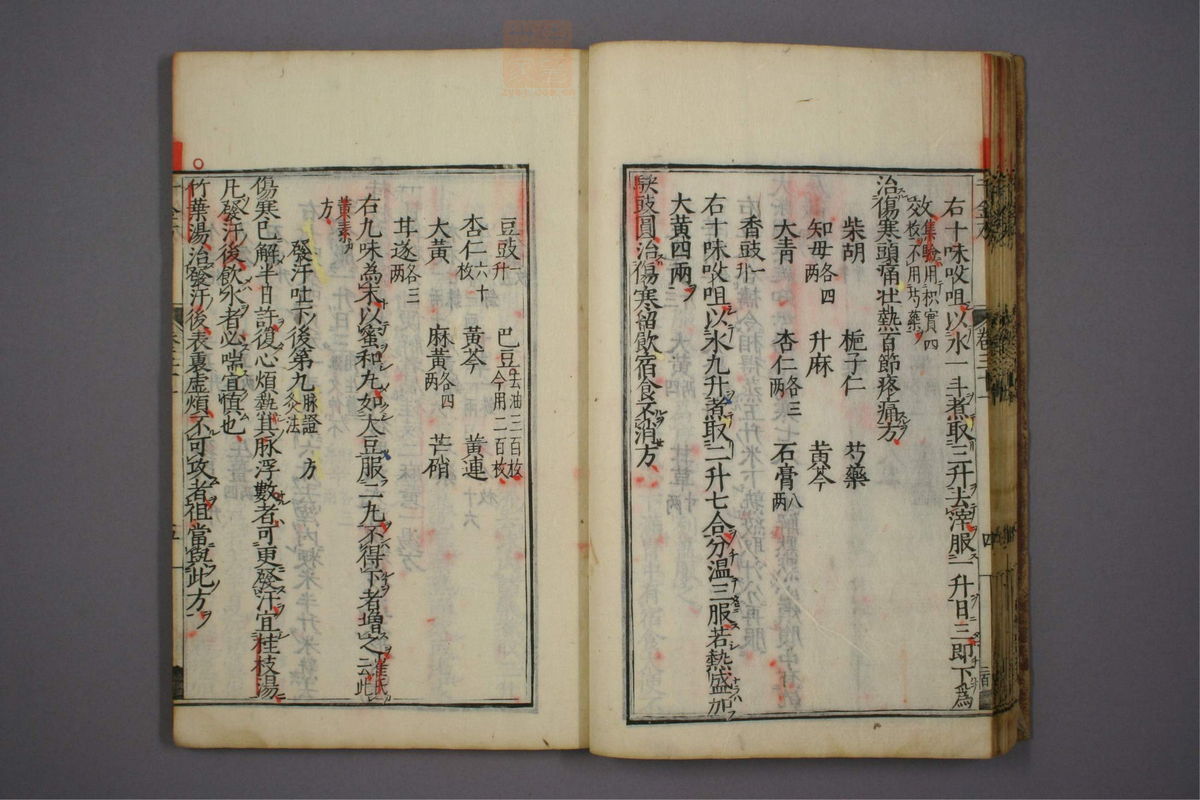 右十味㕮咀以水一斗煮取三升去滓服一升日三即下為
效集驗用枳實四
枚不用芍藥
治傷寒頭痛壯熱百節疼痛方
柴胡 梔子仁 芍藥
知母各四兩 升麻 黃芩
大青 杏仁各三兩 石膏八兩
香豉一升
右十味㕮咀以水九升煮取二升七合分溫三服若熱盛加
大黃四兩
駃豉圓治傷寒留飲宿食不消方
豆豉一升 巴豆去油三百枚今用二百枚
杏仁六十枚 黃芩 黃連
大黃 麻黃各四兩 芒硝
甘遂各三兩
右九味為末以蜜和丸如大豆服二丸不得下者增之崔氏云此
黃素
方
發汗吐下後第九脉證 灸法 方
傷寒已解半日許復心煩熱其脉浮數者可更發汗宜桂枝湯
凡發汗後飲水者必喘宜慎也
竹葉湯治發汗後表裏虛煩不可攻者祖當與此方
四
五